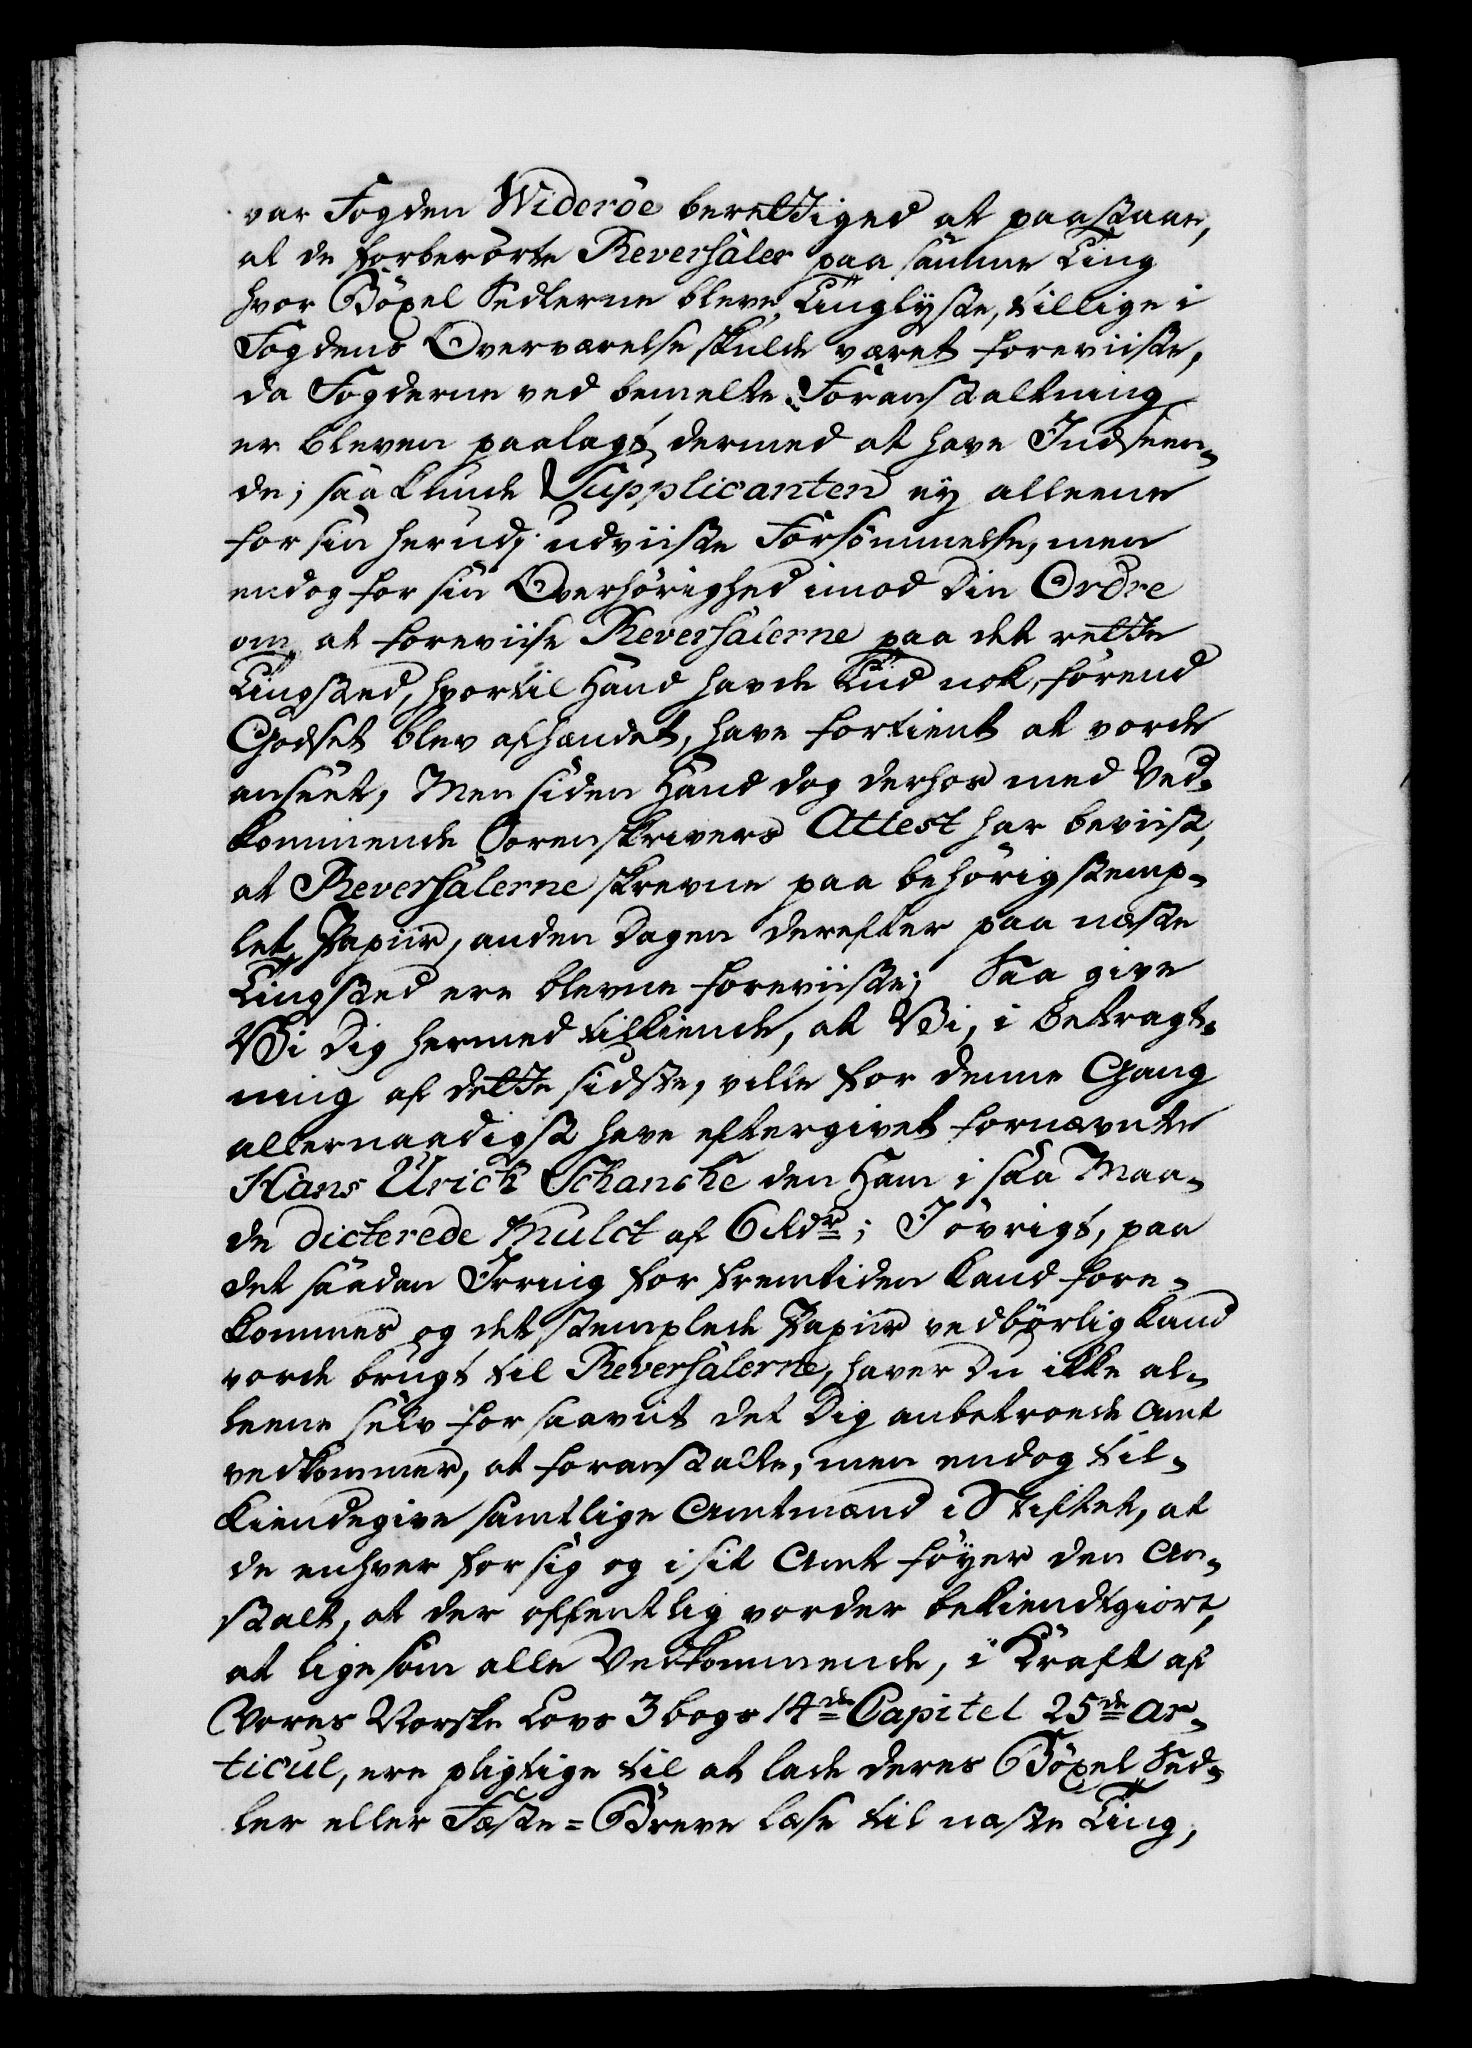 var Fogden Widerøe berettiged at paastaae,
at de forberørte Reversaler paa samme Ting
hvor Böxel Sedlerne bleve Tinglyste, tillige i
Fogdens Overværelse skulde været foreviiste,
da Fogderne ved bemelte Foranstaltning
er bleven paalagt dermed at have Indseen-
de; saa kunde Supplicanten ey alleene
for sin herudj udviiste Forsømmelse, men
endog for sin Overhørighed imod Din Ordre
om at foreviise Reversalerne paa det rette
Tingsted, hvortil Hand havde Tiid nok, førend
Godset blev afhændet, have fortient at vorde
anseet, Men siden Hand dog derhos med Ved-
kommende Sorenskrivers Attest har beviist,
at Reversalerne skrevne paa behørig stemp-
let Papiir, anden Dagen derefter paa næste
Tingsted ere blevne foreviiste; Saa give
Vi Dig hermed tilkiende, at Vi, i betragt-
ning af dette sidste, ville for denne Gang
allernaadigst have eftergivet fornævnte
Hans Ulrich Schanche den Ham i saa Maa-
de dicterede Mulct af 6 Rdr; I øvrigt, paa
det saadan Irring for fremtiden kand fore-
kommes og det stemplede Papiir vedbørlig kand
vorde brugt til Reversalerne, haver Du ikke al-
leene selv for saavit det Dig anbetroede Amt
vedkommer, at foranstalte, men endog til-
kiendegive samtlige Amtmænd i Stiftet, at
de enhver for sig og i sit Amt føyer den An-
stalt, at der offentlig vorder bekiendtgiort,
at ligesom alle Vedkommende, i Kraft af
Vores Norske Lovs 3 bogs 14de Capitel 25de Ar-
ticul, ere pligtige til at lade deres Böxel Sed-
ler eller Fæste=Breve læse til næste Ting,